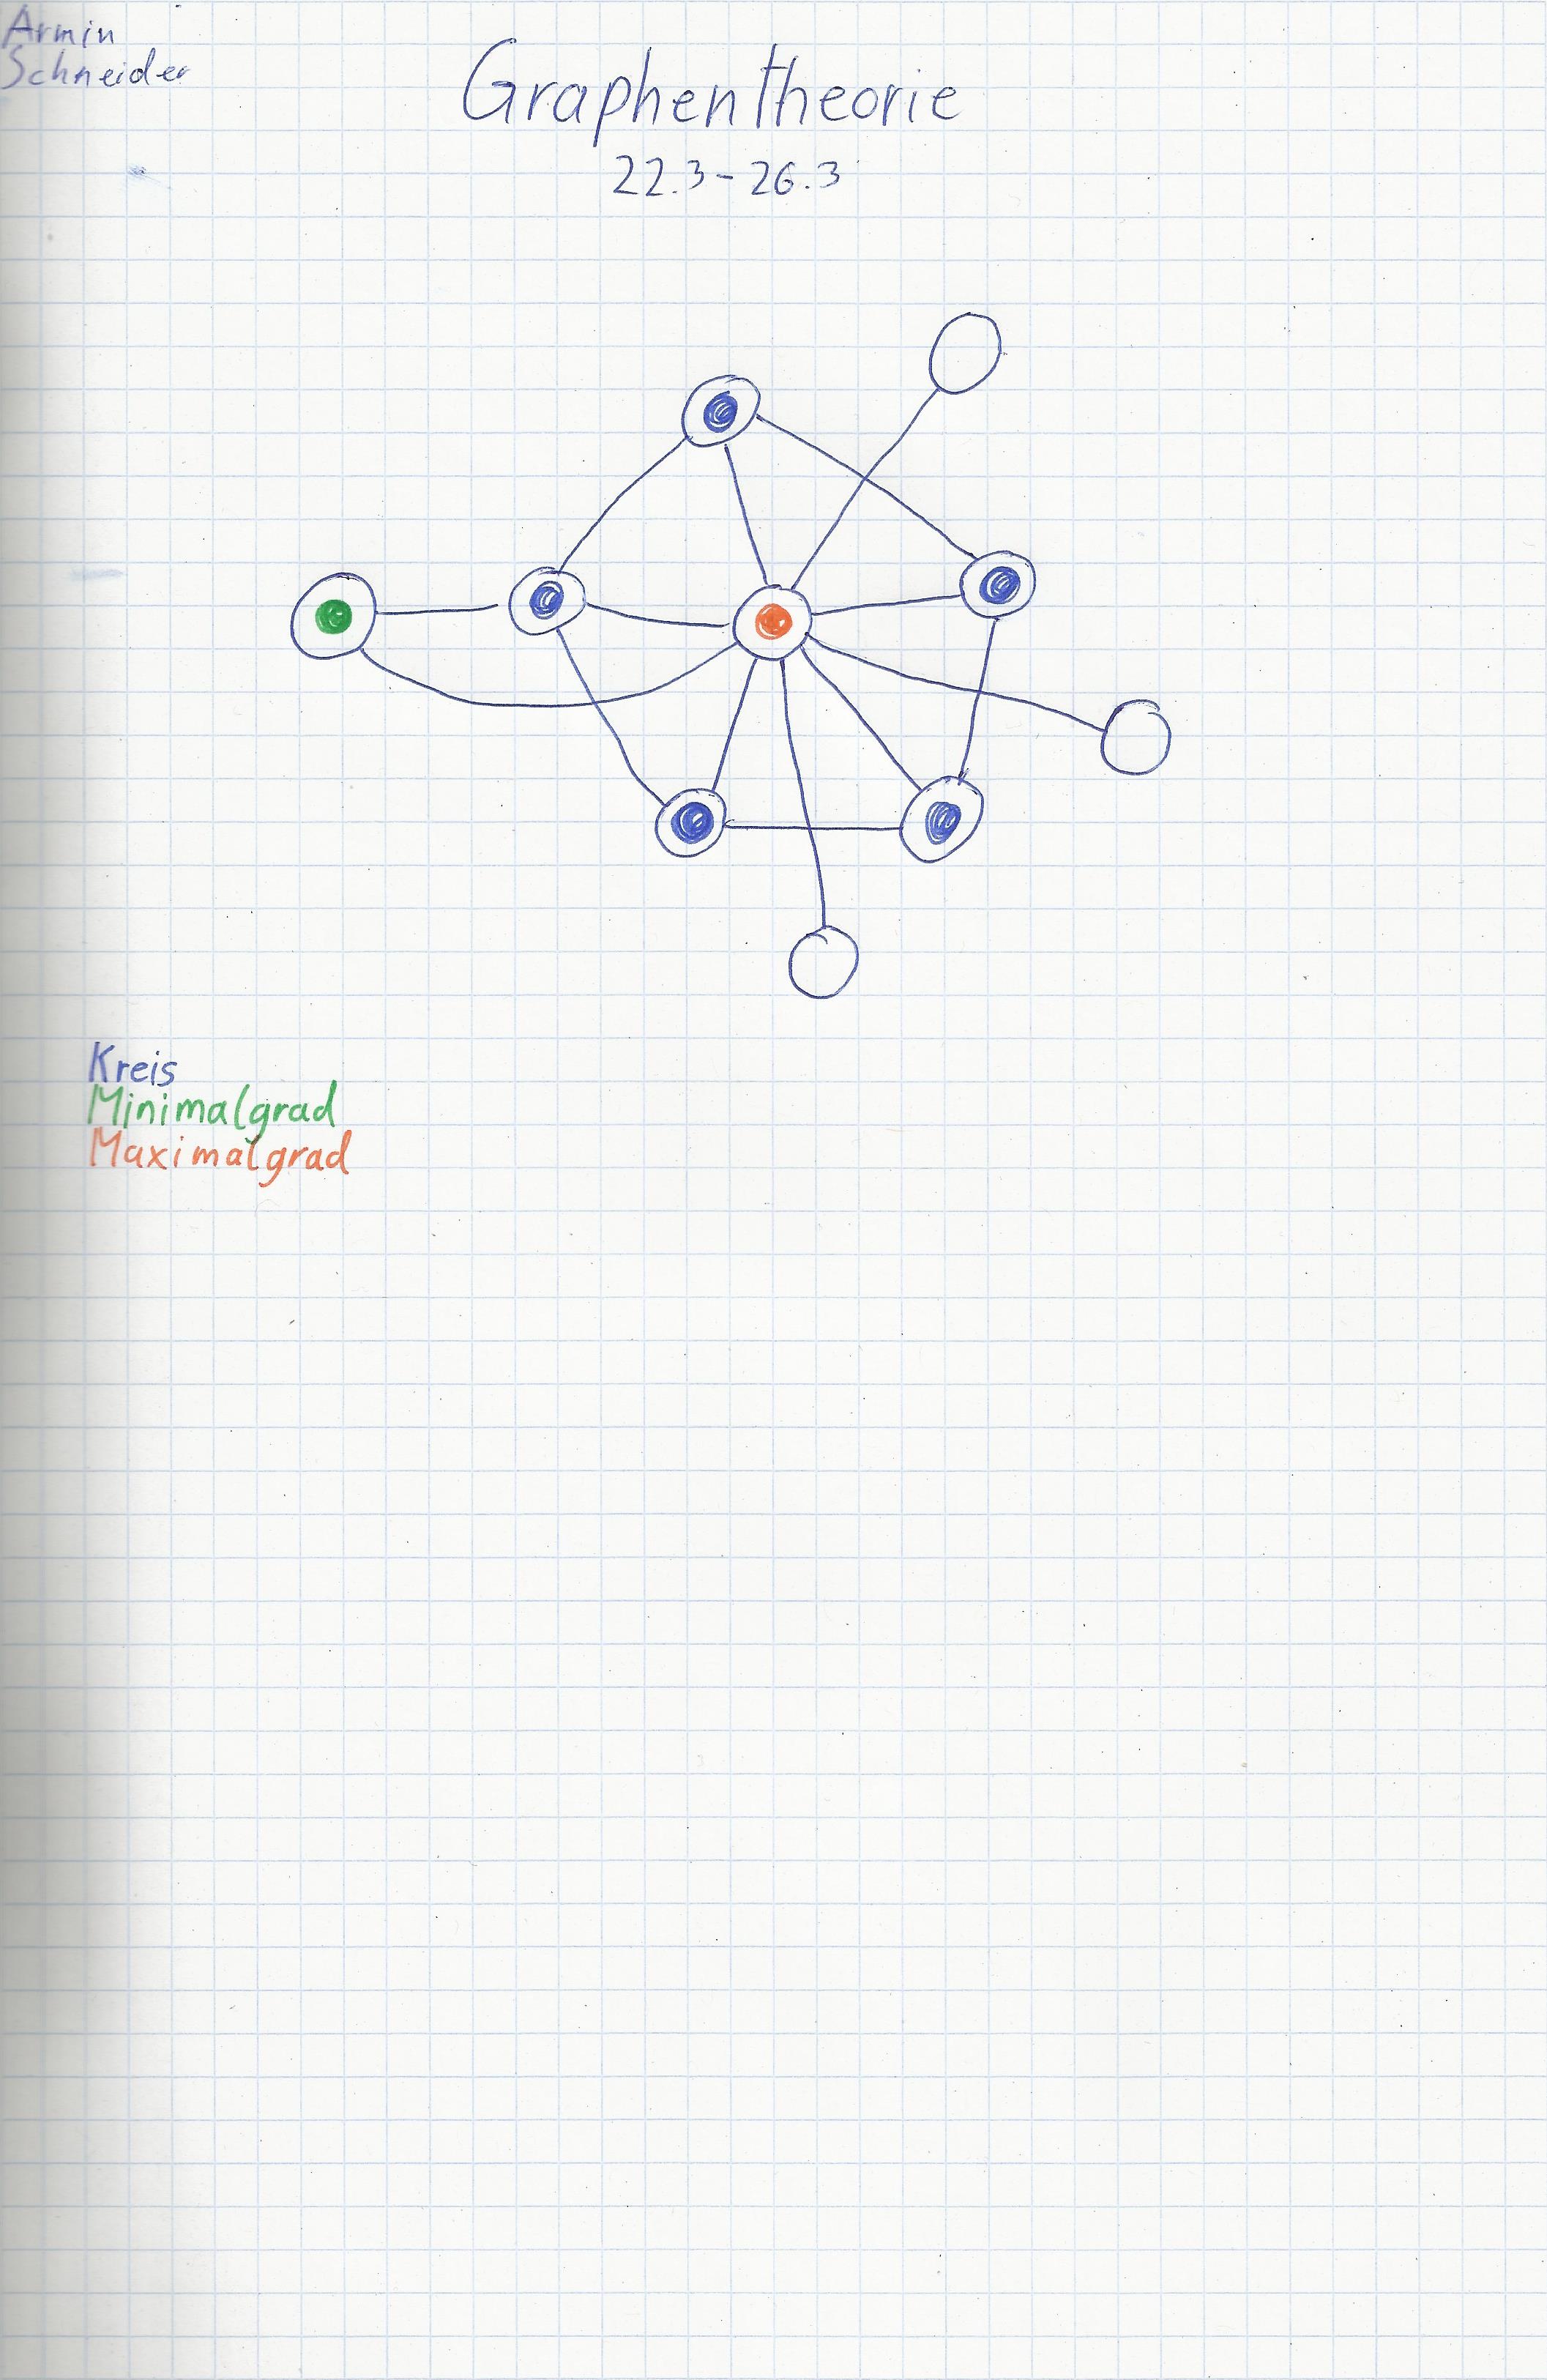 Armin
Schneider
Graphentheorie
22.3-26.3
Kreis
Minimalgrad
Maximalgrad